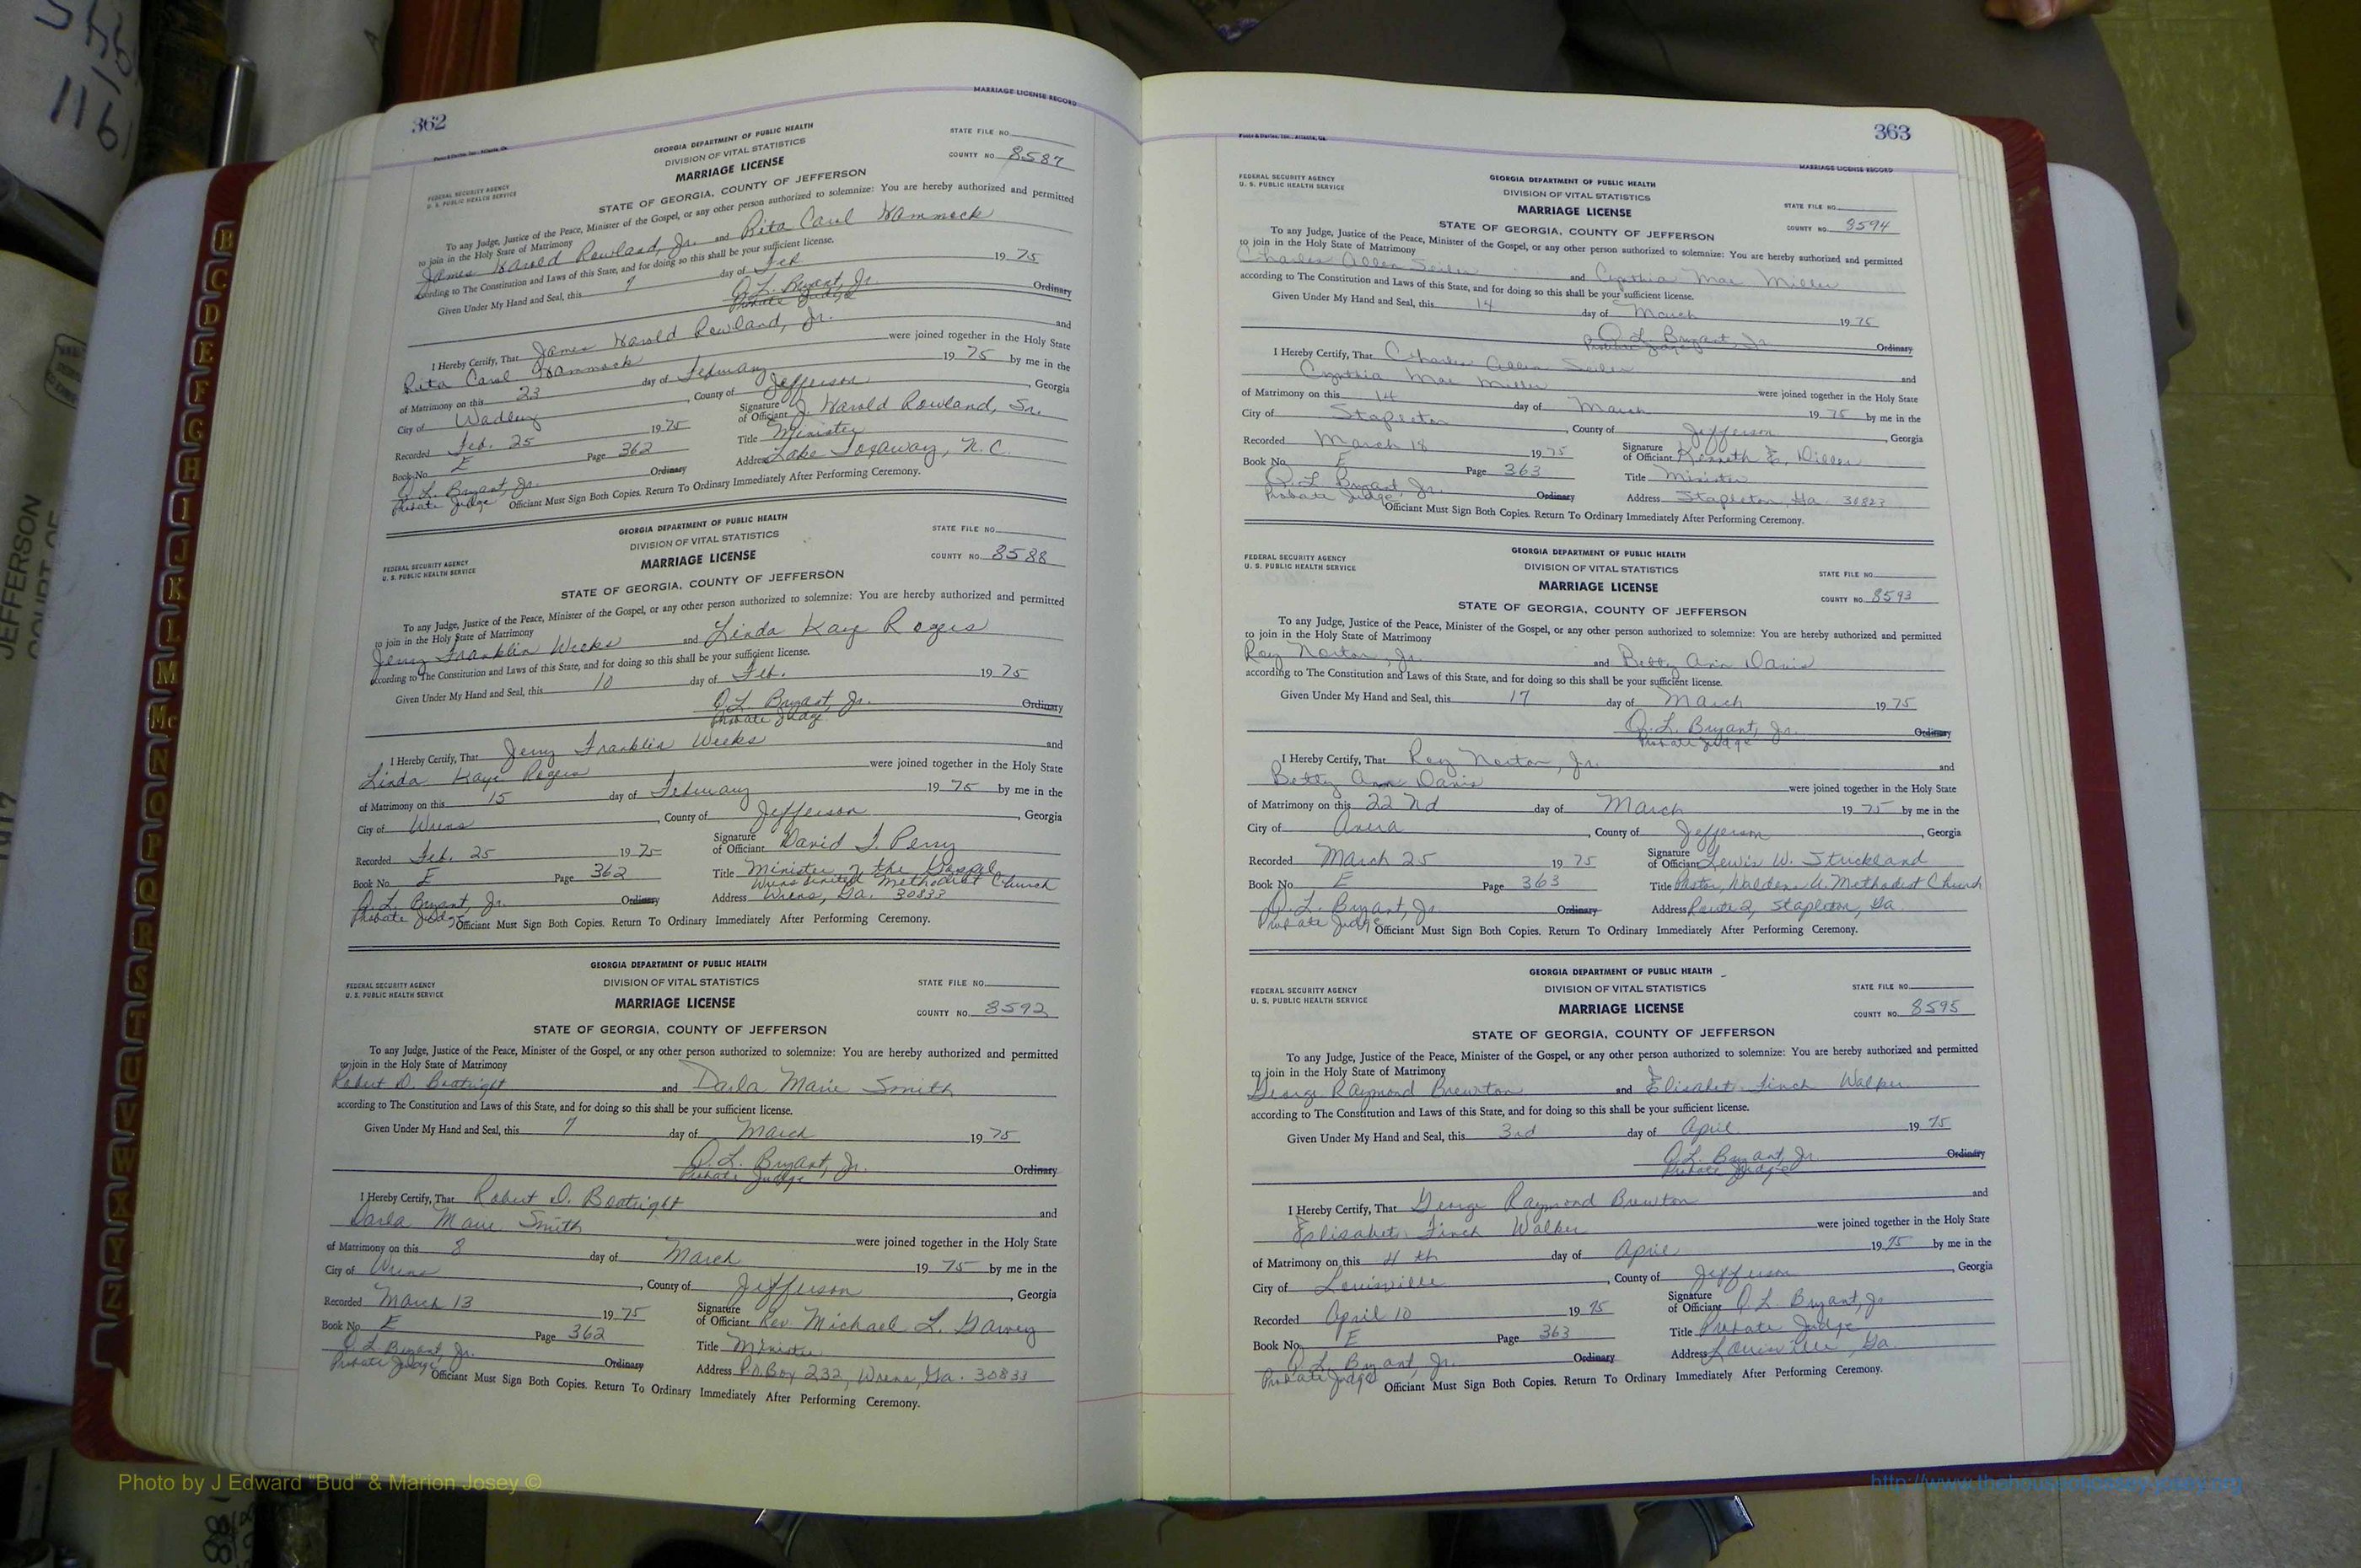 362
MARRIAGE LICENSE RECORD
GEORGIA DEPARTMENT OF PUBLIC HEALTH
DIVISION OF VITAL STATISTICS
MARRIAGE LICENSE
STATE FILE NO.
COUNTY NO. 8587
FEDERAL SECURITY AGENCY
U. S. PUBLIC HEALTH SERVICE
STATE OF GEORGIA, COUNTY OF JEFFERSON
To any Judge, Justice of the Peace, Minister of the Gospel, or any other person authorized to solemnize: You are hereby authorized and permitted
to join in the Holy State of Matrimony
James Harold Rowland, Jr. and Rita Carol Hammock
according to The Constitution and Laws of this State, and for doing so this shall be your sufficient license.
Given Under My Hand and Seal, this 7 day of Feb. 1975
Q. L. Bryant, Jr. Ordinary
Probate Judge
I Hereby Certify, That James Harold Rowland, Jr. and
Rita Carol Hammock were joined together in the Holy State
of Matrimony on this 23 day of February 1975 by me in the
City of Wadley, County of Jefferson, Georgia
Recorded Feb. 25 1975 Signature of Officiant J. Harold Rowland, Sr.
Book No. E Page 362 Title Minister
Q. L. Bryant, Jr. Ordinary Address Lake Toxaway, N. C.
Probate Judge Officiant Must Sign Both Copies. Return To Ordinary Immediately After Performing Ceremony.
GEORGIA DEPARTMENT OF PUBLIC HEALTH
DIVISION OF VITAL STATISTICS
MARRIAGE LICENSE
STATE FILE NO.
COUNTY NO. 8588
FEDERAL SECURITY AGENCY
U. S. PUBLIC HEALTH SERVICE
STATE OF GEORGIA, COUNTY OF JEFFERSON
To any Judge, Justice of the Peace, Minister of the Gospel, or any other person authorized to solemnize: You are hereby authorized and permitted
to join in the Holy State of Matrimony
Jerry Franklin Weeks and Linda Kaye Rogers
according to The Constitution and Laws of this State, and for doing so this shall be your sufficient license.
Given Under My Hand and Seal, this 10 day of Feb. 1975
Q. L. Bryant, Jr. Ordinary
Probate Judge
I Hereby Certify, That Jerry Franklin Weeks and
Linda Kaye Rogers were joined together in the Holy State
of Matrimony on this 15 day of February 1975 by me in the
City of Wrens, County of Jefferson, Georgia
Recorded Feb. 25 1975 Signature of Officiant David T. Perry
Book No. E Page 362 Title Minister of the Gospel
Wrens United Methodist Church
Q. L. Bryant, Jr. Ordinary Address Wrens, Ga. 30833
Probate Judge Officiant Must Sign Both Copies. Return To Ordinary Immediately After Performing Ceremony.
GEORGIA DEPARTMENT OF PUBLIC HEALTH
DIVISION OF VITAL STATISTICS
MARRIAGE LICENSE
STATE FILE NO.
COUNTY NO. 8592
FEDERAL SECURITY AGENCY
U. S. PUBLIC HEALTH SERVICE
STATE OF GEORGIA, COUNTY OF JEFFERSON
To any Judge, Justice of the Peace, Minister of the Gospel, or any other person authorized to solemnize: You are hereby authorized and permitted
to join in the Holy State of Matrimony
Robert D. Boatright and Darla Marie Smith
according to The Constitution and Laws of this State, and for doing so this shall be your sufficient license.
Given Under My Hand and Seal, this 7 day of March 1975
Q. L. Bryant, Jr. Ordinary
Probate Judge
I Hereby Certify, That Robert D. Boatright and
Darla Marie Smith were joined together in the Holy State
of Matrimony on this 8 day of March 1975 by me in the
City of Wrens, County of Jefferson, Georgia
Recorded March 13 1975 Signature of Officiant Rev Michael L. Garvey
Book No. E Page 362 Title Minister
Q. L. Bryant, Jr. Ordinary Address P.O. Box 232, Wrens, Ga. 30833
Probate Judge Officiant Must Sign Both Copies. Return To Ordinary Immediately After Performing Ceremony.
363
MARRIAGE LICENSE RECORD
FEDERAL SECURITY AGENCY
U. S. PUBLIC HEALTH SERVICE
GEORGIA DEPARTMENT OF PUBLIC HEALTH
DIVISION OF VITAL STATISTICS
MARRIAGE LICENSE
STATE FILE NO.
COUNTY NO. 8594
STATE OF GEORGIA, COUNTY OF JEFFERSON
To any Judge, Justice of the Peace, Minister of the Gospel, or any other person authorized to solemnize: You are hereby authorized and permitted
to join in the Holy State of Matrimony
Charles Allen Seiler and Cynthia Mae Miller
according to The Constitution and Laws of this State, and for doing so this shall be your sufficient license.
Given Under My Hand and Seal, this 14 day of March 1975
Q. L. Bryant, Jr. Ordinary
Probate Judge
I Hereby Certify, That Charles Allen Seiler and
Cynthia Mae Miller were joined together in the Holy State
of Matrimony on this 14 day of March 1975 by me in the
City of Stapleton, County of Jefferson, Georgia
Recorded March 18 1975 Signature of Officiant Kenneth E.
Book No. E Page 363 Title Minister
Q. L. Bryant, Jr. Ordinary Address Stapleton, Ga. 30823
Probate Judge Officiant Must Sign Both Copies. Return To Ordinary Immediately After Performing Ceremony.
GEORGIA DEPARTMENT OF PUBLIC HEALTH
DIVISION OF VITAL STATISTICS
MARRIAGE LICENSE
FEDERAL SECURITY AGENCY
U. S. PUBLIC HEALTH SERVICE
STATE FILE NO.
COUNTY NO. 8593
STATE OF GEORGIA, COUNTY OF JEFFERSON
To any Judge, Justice of the Peace, Minister of the Gospel, or any other person authorized to solemnize: You are hereby authorized and permitted
to join in the Holy State of Matrimony
Roy Norton, Jr. and Betty Ann Davis
according to The Constitution and Laws of this State, and for doing so this shall be your sufficient license.
Given Under My Hand and Seal, this 17 day of March 1975
Q. L. Bryant, Jr. Ordinary
Probate Judge
I Hereby Certify, That Roy Norton, Jr. and
Betty Ann Davis were joined together in the Holy State
of Matrimony on this 22nd day of March 1975 by me in the
City of Avera, County of Jefferson, Georgia
Recorded March 25 1975 Signature of Officiant Lewis W. Strickland
Book No. E Page 363 Title Pastor, Waldens U. Methodist Church
Q. L. Bryant, Jr. Ordinary Address Route 2, Stapleton, Ga.
Probate Judge Officiant Must Sign Both Copies. Return To Ordinary Immediately After Performing Ceremony.
GEORGIA DEPARTMENT OF PUBLIC HEALTH
DIVISION OF VITAL STATISTICS
MARRIAGE LICENSE
FEDERAL SECURITY AGENCY
U. S. PUBLIC HEALTH SERVICE
STATE FILE NO.
COUNTY NO. 8595
STATE OF GEORGIA, COUNTY OF JEFFERSON
To any Judge, Justice of the Peace, Minister of the Gospel, or any other person authorized to solemnize: You are hereby authorized and permitted
to join in the Holy State of Matrimony
George Raymond Brewton and Elisabeth Finch Walker
according to The Constitution and Laws of this State, and for doing so this shall be your sufficient license.
Given Under My Hand and Seal, this 3rd day of April 1975
Q. L. Bryant, Jr. Ordinary
Probate Judge
I Hereby Certify, That George Raymond Brewton and
Elisabeth Finch Walker were joined together in the Holy State
of Matrimony on this 4th day of April 1975 by me in the
City of Louisville, County of Jefferson, Georgia
Recorded April 10 1975 Signature of Officiant Q L. Bryant, Jr
Book No. E Page 363 Title Probate Judge
Q. L. Bryant, Jr. Ordinary Address Louisville, Ga.
Probate Judge Officiant Must Sign Both Copies. Return To Ordinary Immediately After Performing Ceremony.
B
C
D
E
F
G
H
I
J
K
L
M
Mc
N
O
P
Q
R
S
T
U
V
W
X
Y
Z
JEFFERSON
COURT OF
Photo by J Edward "Bud" & Marion Josey ©